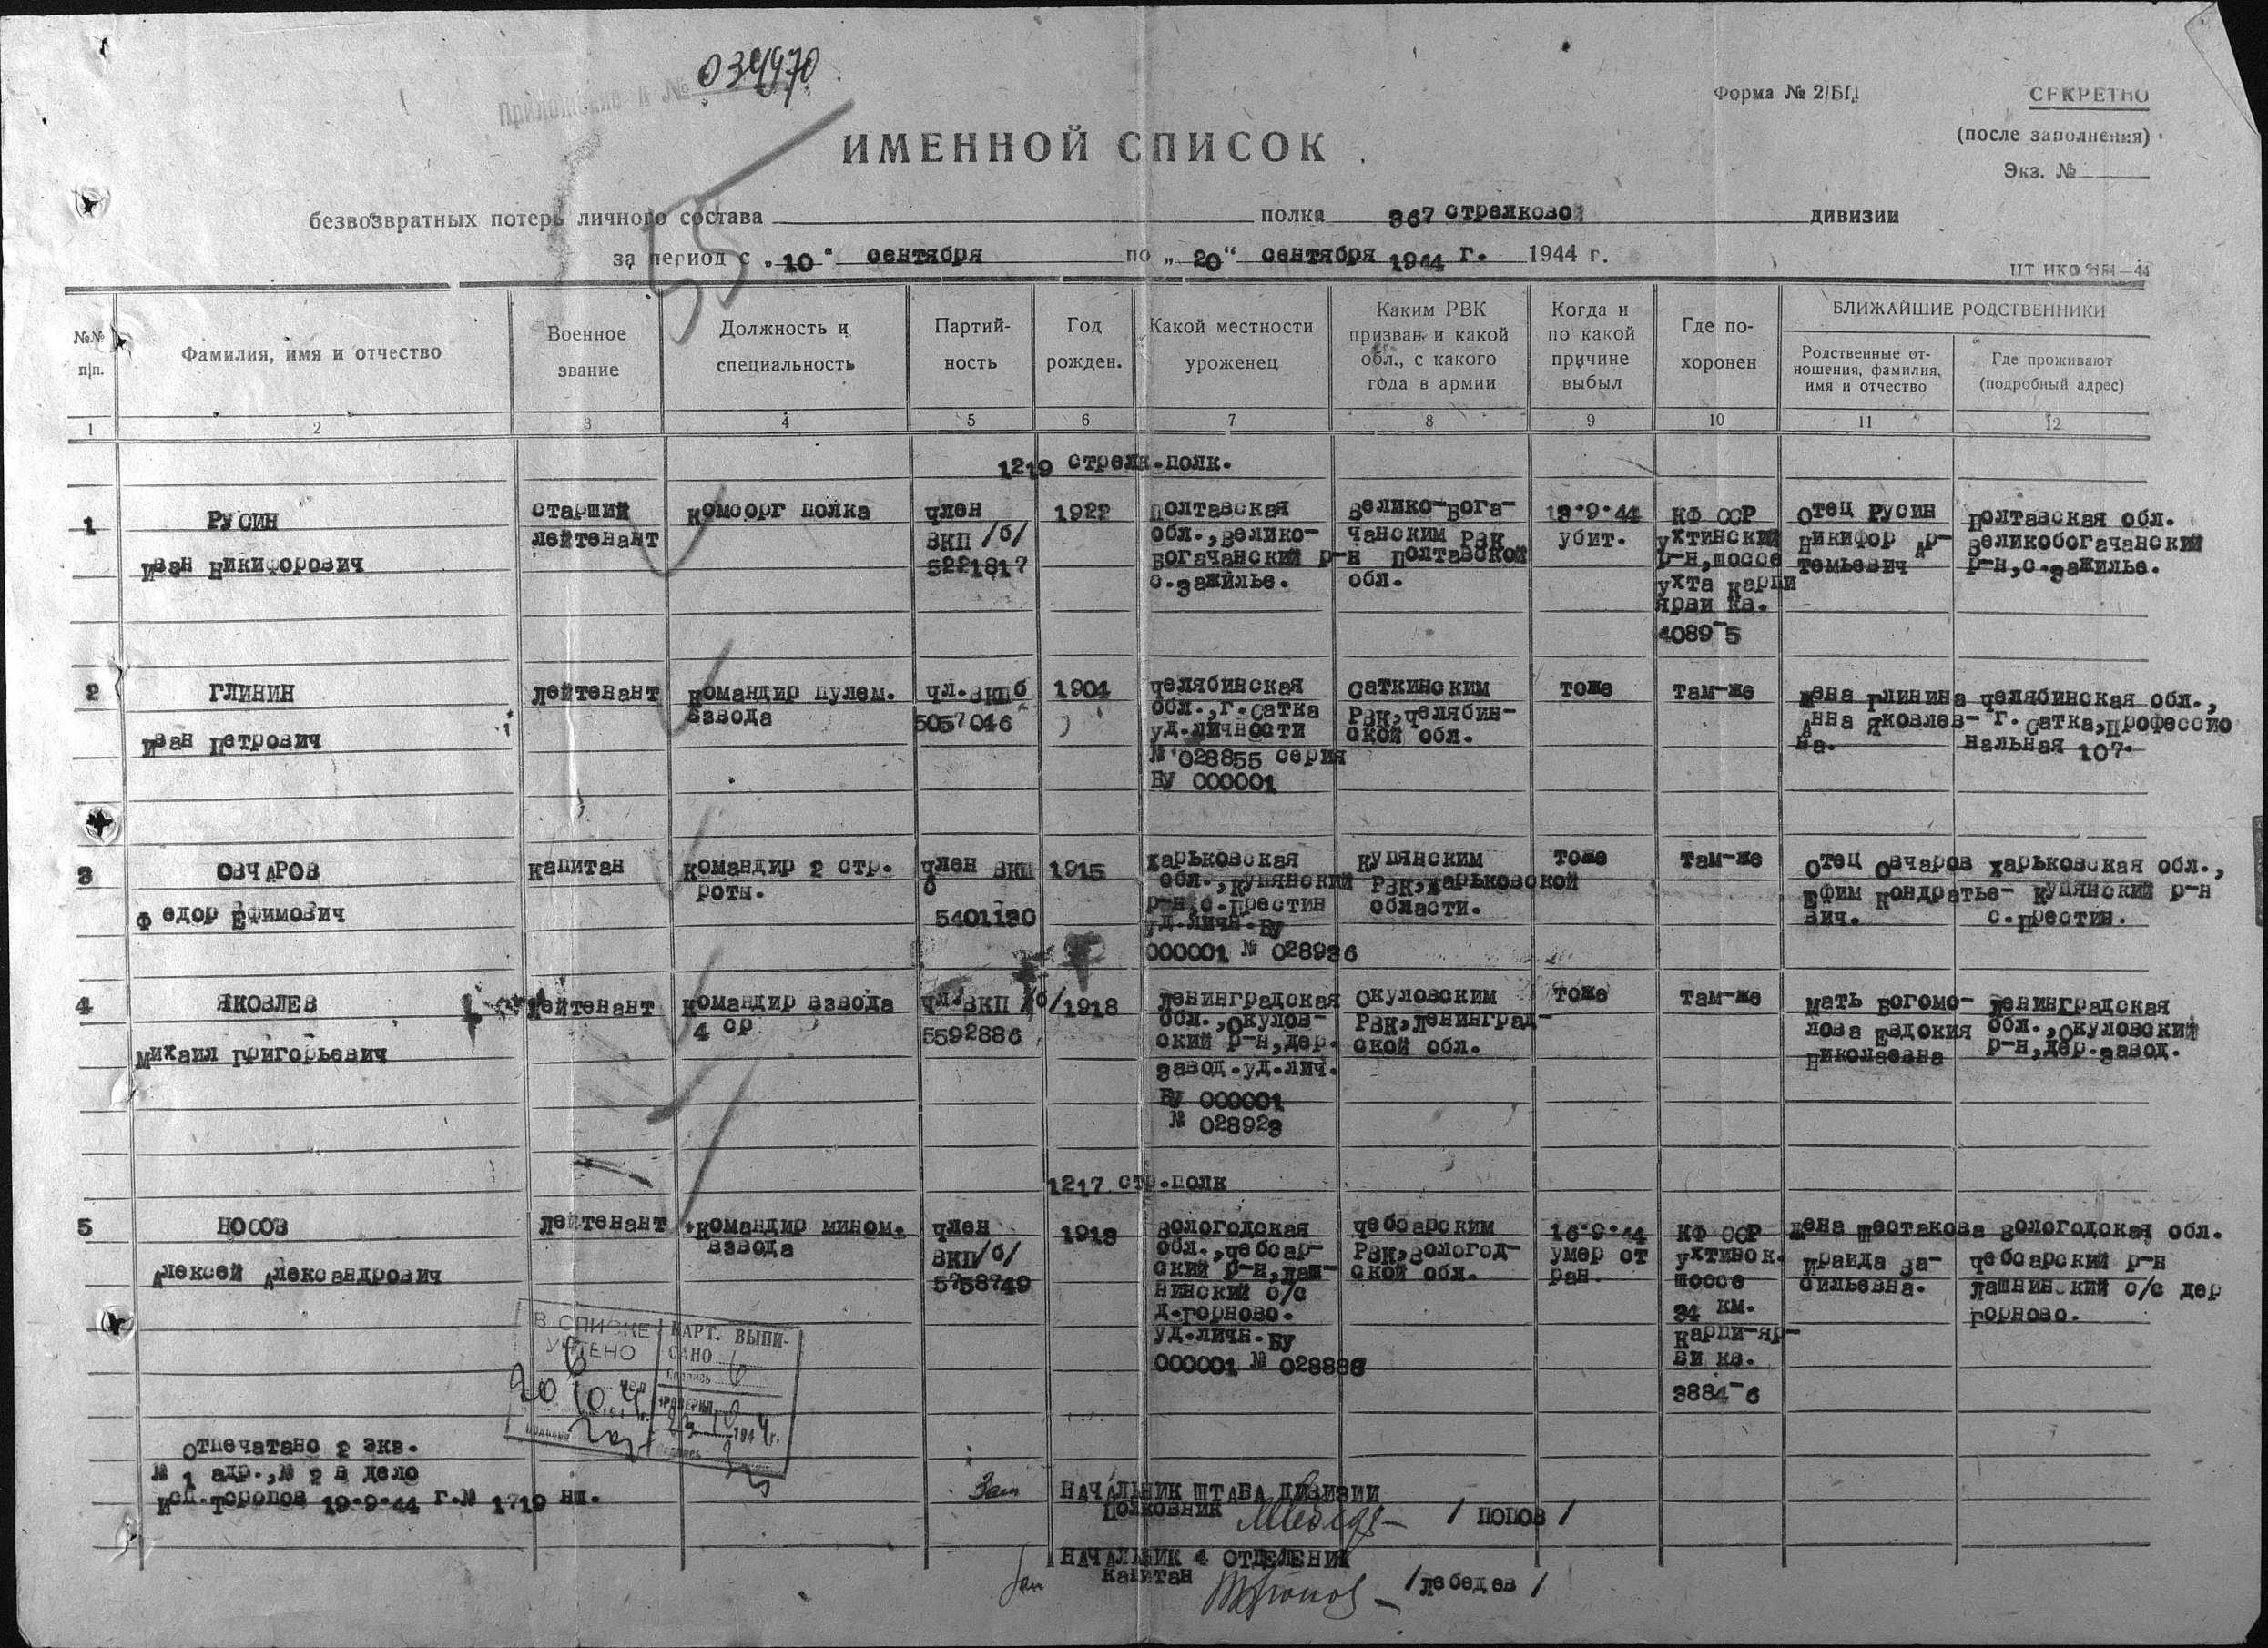 Приложение к № 034970
Форма № 2/БП
СЕКРЕТНО
(после заполнения)
Экз. №
55
ИМЕННОЙ СПИСОК
безвозвратных потерь личного состава полка 367 стрелковой дивизии
за период с „10“ сентября по „20“ сентября 1944 г. 1944 г.
№№ п/п.
Фамилия, имя и отчество
Военное звание
Должность и специальность
Партий-
ность
Год рожден.
Какой местности уроженец
Каким РВК
призван и какой
обл., с какого
года в армии
Когда и
по какой
причине
выбыл
Где по-
хоронен
БЛИЖАЙШИЕ РОДСТВЕННИКИ
Родственные от-
ношения, фамилия,
имя и отчество
Где проживают
(подробный адрес)
1 2 3 4 5 6 7 8 9 10 11 12
1219 стрелк.полк.
1
РУСИН
Иван Никифорович
старший
лейтенант
комсорг полка
член
ВКП /б/
5221817
1922
Полтавская
обл.,Велико-
Богачанский р-н
с.Зажилье.
Велико-Бога-
чанским РВК
Полтавской
обл.
13.9.44
убит.
КФ ССР
Ухтинский
р-н,шоссе
Ухта Карпи
ярви кв.
4089-5
Отец Русин
Никифор Ар-
темьевич
Полтавская обл.
Великобогачанский
р-н,с.Зажилье.
2
ГЛИНИН
Иван Петрович
лейтенант
Командир пулем.
взвода
чл.ВКПб
5057046
1904
Челябинская
обл.,г.Сатка
уд.личности
№ 028855 серия
БУ 000001
Саткинским
РВК,Челябин-
ской обл.
тоже
там-же
Жена Глинина
Анна Яковлев-
на.
Челябинская обл.,
г. Сатка,Профессио
нальная 107.
3
ОВЧАРОВ
Федор Ефимович
капитан
Командир 2 стр.
роты.
член ВКП
б
5401130
1915
Харьковская
обл.,Купянский
р-н,с.Престин
уд.личн.БУ
000001 № 028936
Купянским
РВК,Харьковской
области.
тоже
там-же
Отец Овчаров
Ефим Кондратье-
вич.
Харьковская обл.,
Купянский р-н
с.Престин.
4
ЯКОВЛЕВ
Михаил Григорьевич
лейтенант
Командир взвода
4 ср
чл.ВКП /б/
5592886
1918
Ленинградская
обл.,Окулов-
ский р-н,дер.
Завод.уд.лич.
БУ 000001
№ 028923
Окуловским
РВК,Ленинград-
ской обл.
тоже
там-же
Мать Богомо-
лова Евдокия
Николаевна
Ленинградская
обл.,Окуловский
р-н,дер.Завод.
1217 стр.полк
5
НОСОВ
Алексей Александрович
лейтенант
Командир мином.
взвода
член
ВКП/б/
5758749
1918
Вологодская
обл.,Чебсар-
ский р-н,Лаш-
нинский с/с
д.Горново.
уд.личн.БУ
000001 № 028888
Чебсарским
РВК,Вологод-
ской обл.
16.9.44
умер от
ран.
КФ ССР
Ухтинск.
шоссе
34 км.
Карпи-яр-
ви кв.
3884-6
Жена Шестакова
Ираида Ва-
сильевна.
Вологодская обл.
Чебсарский р-н
Лашнинский с/с дер
Горново.
В СПИСКЕ
УЧТЕНО
6 чел
20 10. 4 г.
Подпись
КАРТ. ВЫПИ-
САНО 6
Подпись
ПРОВЕРИЛ
1944г.
Подпись
Отпечатано 2 экз.
№ 1 адр.,№ 2 в дело
Исп.Торопов 19.9.44 г.№ 1719 нш.
Зам НАЧАЛЬНИК ШТАБА ДИВИЗИИ
Полковник / ПОПОВ /
Зам НАЧАЛЬНИК 4 ОТДЕЛЕНИЯ
капитан /Лебедев /